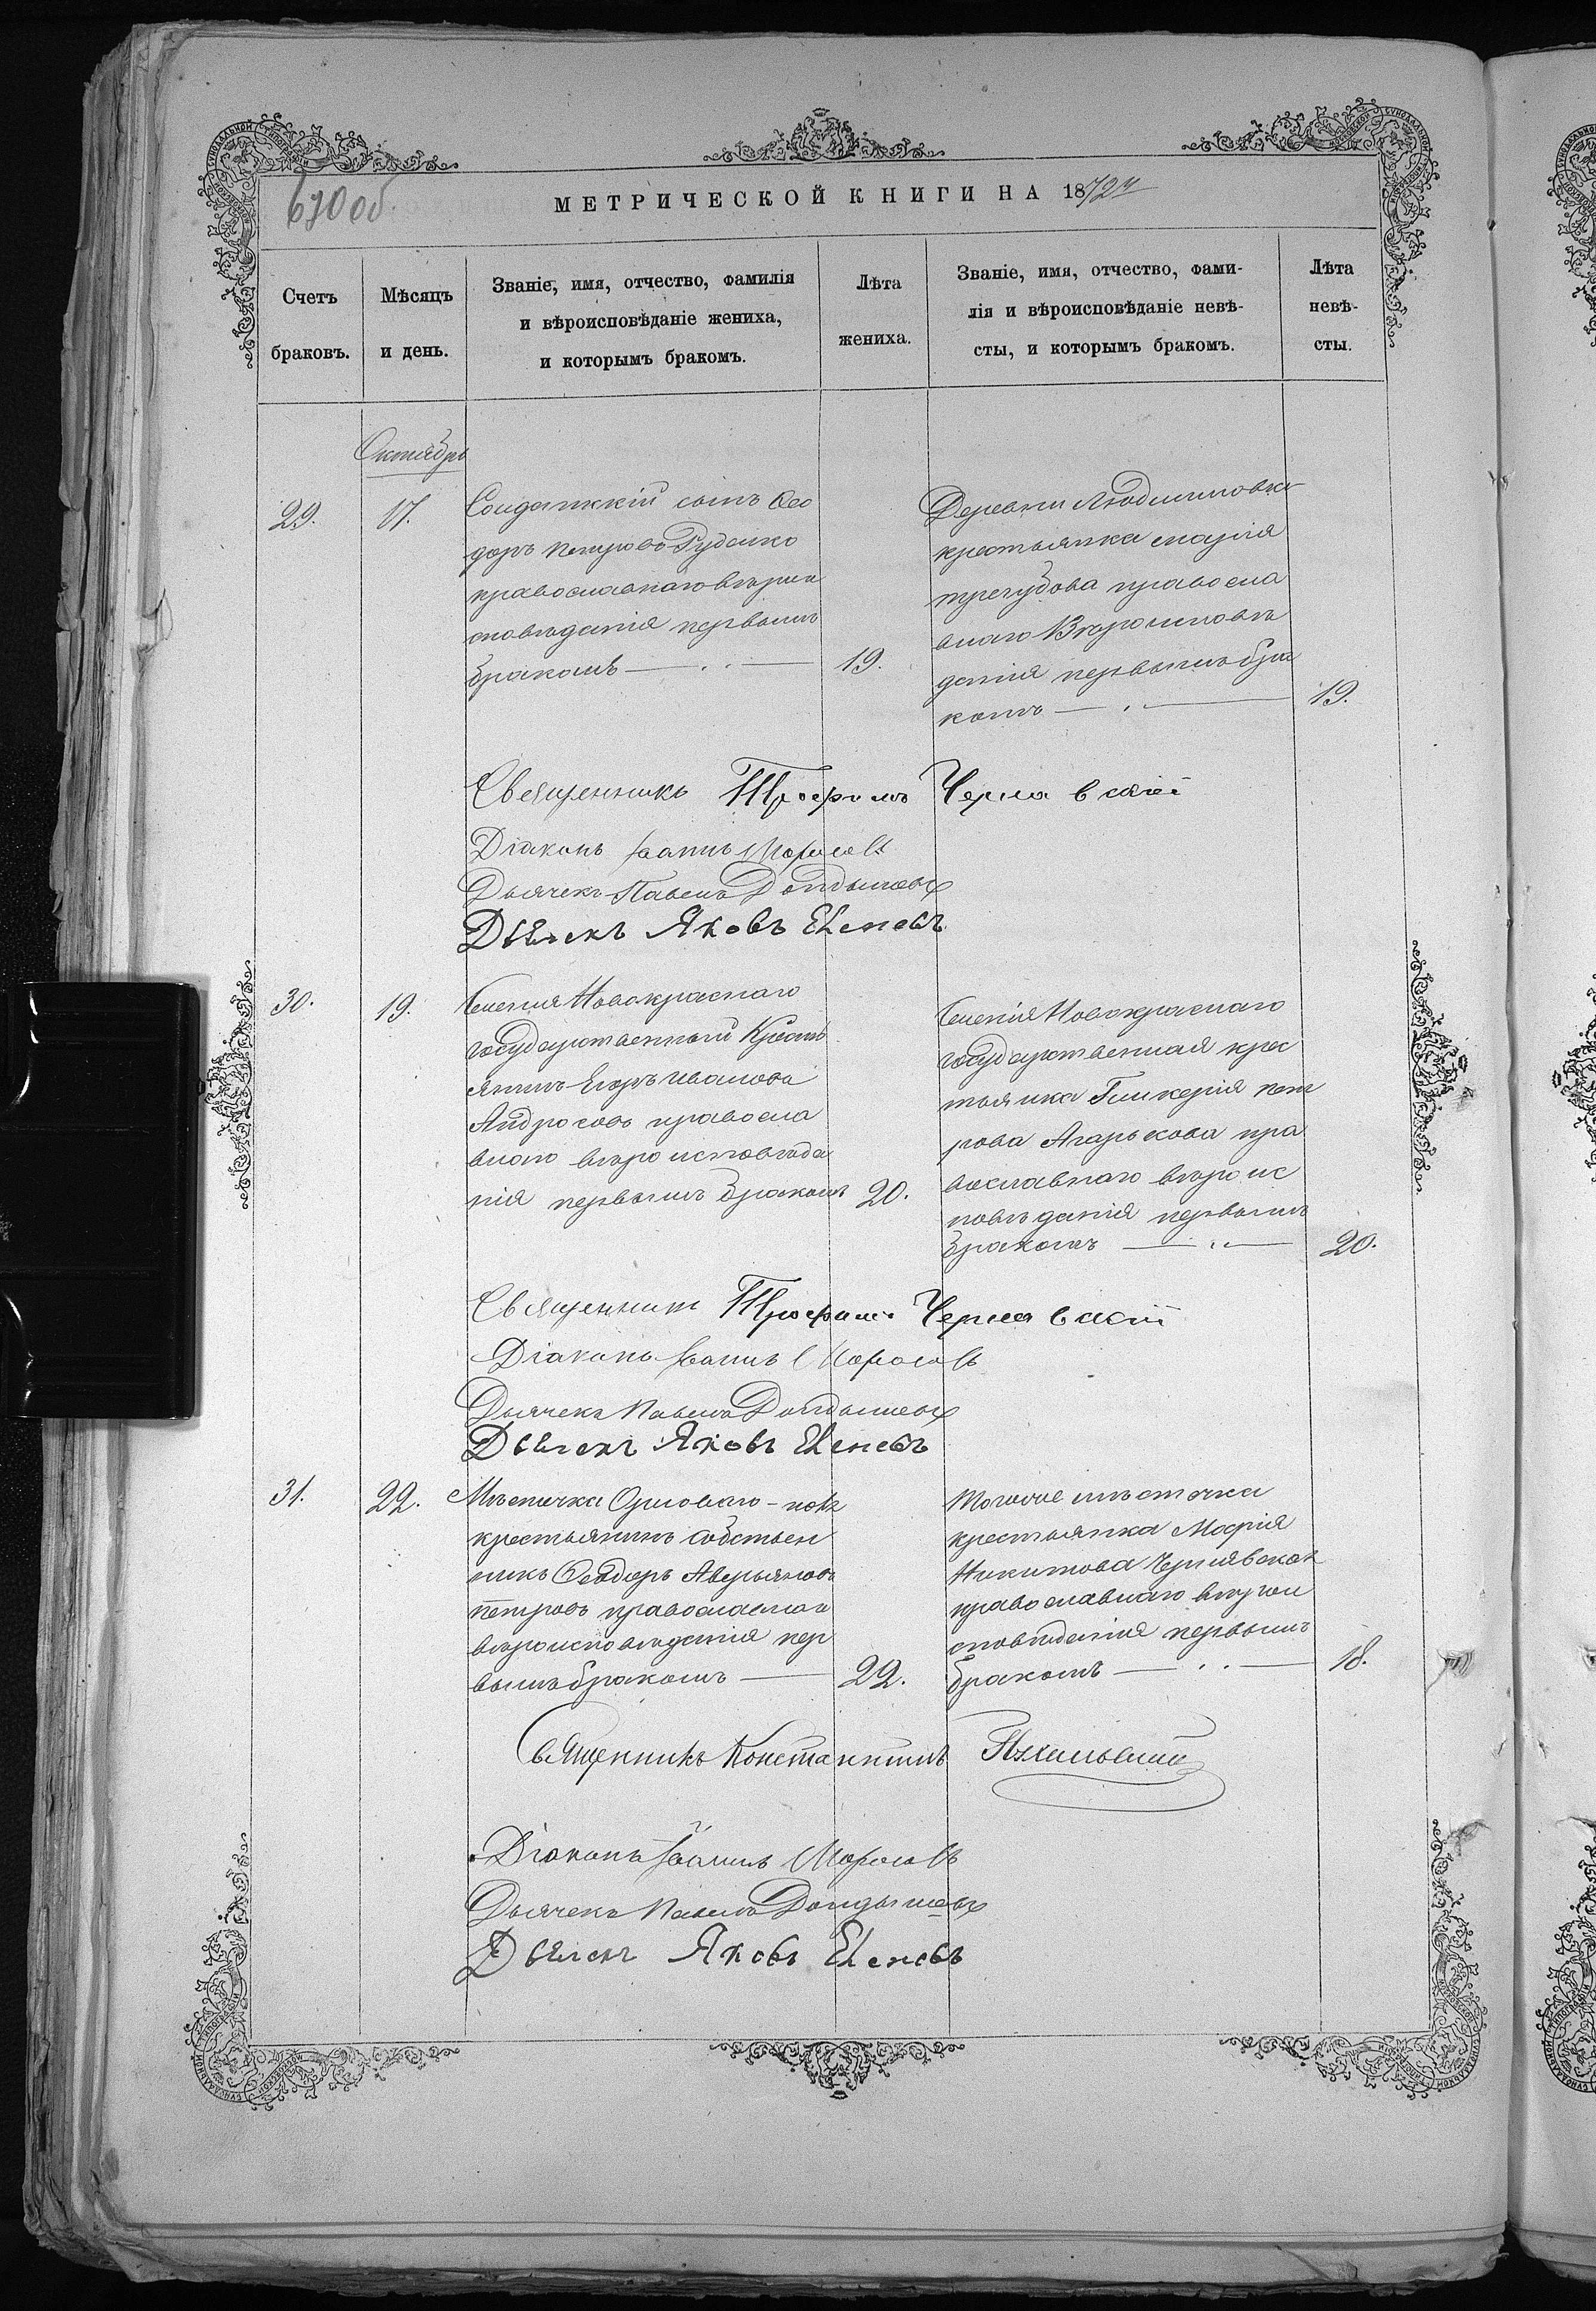 670 об
МЕТРИЧЕСКОЙ КНИГИ НА 1872 й
Счетъ браковъ.
Мѣсяцъ и день.
Званіе, имя, отчество, фамилія
и вѣроисповѣданіе жениха,
и которымъ бракомъ.
Лѣта жениха.
Званіе, имя, отчество, фами-
лія и вѣроисповѣданіе невѣ-
сты, и которымъ бракомъ.
Лѣта невѣ-
сты.
Октябрь
29.
17.
Солдатскій сынъ Ѳео
доръ Петровъ Руденко
православнаго вѣрои
сповѣданія первымъ
бракомъ
19.
Деревни Людмиловки
крестьянка Марія
Трегубова правосла
внаго Вѣроисповѣ
данія первымъ бра
комъ
19.
Священникъ Трофимъ Чернавскій
Діаконъ Іоаннъ Морозовъ
Дьячекъ Павелъ
Дьячекъ Яковъ
30.
19.
Селенія Новокраснаго
государственный Кресть
янинъ Егоръ Ивановъ
Андросовъ правосла
внаго вѣроисповѣда
нія первымъ бракомъ
20.
Селенія Новокраснаго
государственная крес
тьянка Гликерія Пет
рова Агаркова пра
вославнаго вѣроис
повѣданія первымъ
бракомъ
20.
Священникъ Трофимъ Чернавскій
Діаконъ Іоаннъ Морозовъ
Дьячекъ Павелъ
Дьячекъ Яковъ
31.
22.
Мѣстечка
крестьянинъ собствен
никъ Ѳеодоръ Аверьяновъ
Петровъ православнаго
вѣроисповѣданія пер
вымъ бракомъ
22.
Тогоже мѣстечка
крестьянка Марія
Никитова Чернявская
православнаго вѣрои
сповѣданія первымъ
бракомъ
18.
Священникъ Константинъ
Діаконъ Іоаннъ Морозовъ
Дьячекъ Павелъ
Дьячекъ Яковъ